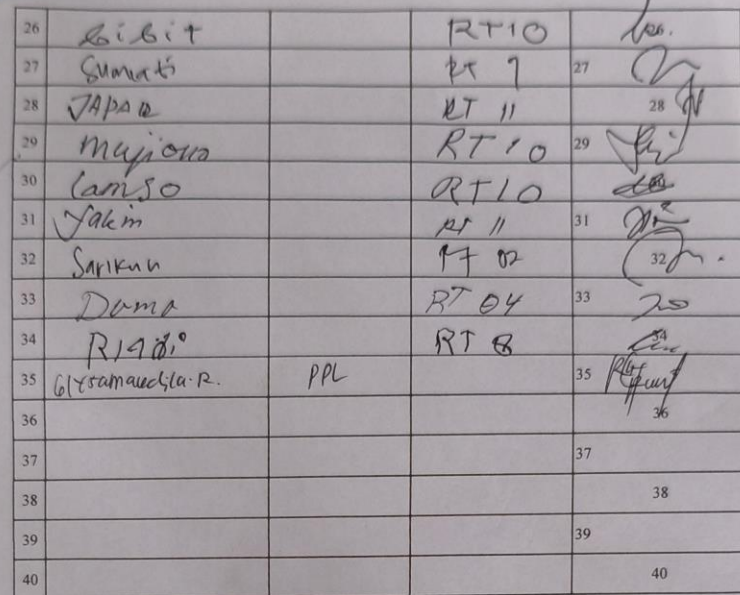 26 Bibit RT10
27 Sumiati RT 7 27
28 JAPAR RT 11 28
29 Mujiono RT 10 29
30 Lamso RT10
31 Yakin RT 11 31
32 Sarikun RT 02 32
33 Dama RT 04 33
34 RT 8 34
35 PPL 35
36 36
37 37
38 38
39 39
40 40